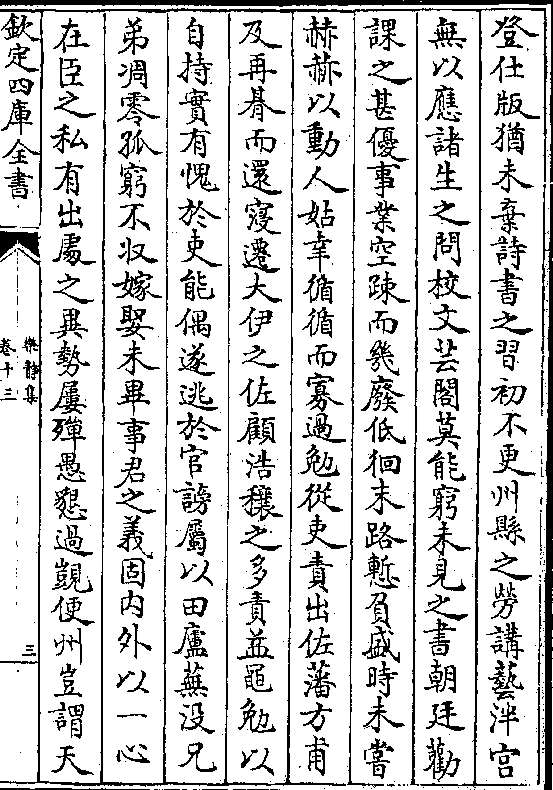 登仕版猶未棄詩書之習初不更州縣之勞講藝泮宫
無以應諸生之問校文芸閣莫能窮未見之書朝廷勸
課之甚優事業空疎而幾廢低徊末路慙負盛時未嘗
赫赫以動人姑幸循循而寡過勉從吏責出佐藩方甫
及再朞而還寖遷大伊之佐顧浩穰之多責益黽勉以
自持實有愧於吏能偶遂逃於官謗屬以田廬蕪没兄
弟凋零孤窮不收嫁娶未畢事君之義固内外以一心
在臣之私有出處之異勢屢殫愚懇過覬便州豈謂天
欽定四庫全書
樂靜集
卷十三
三